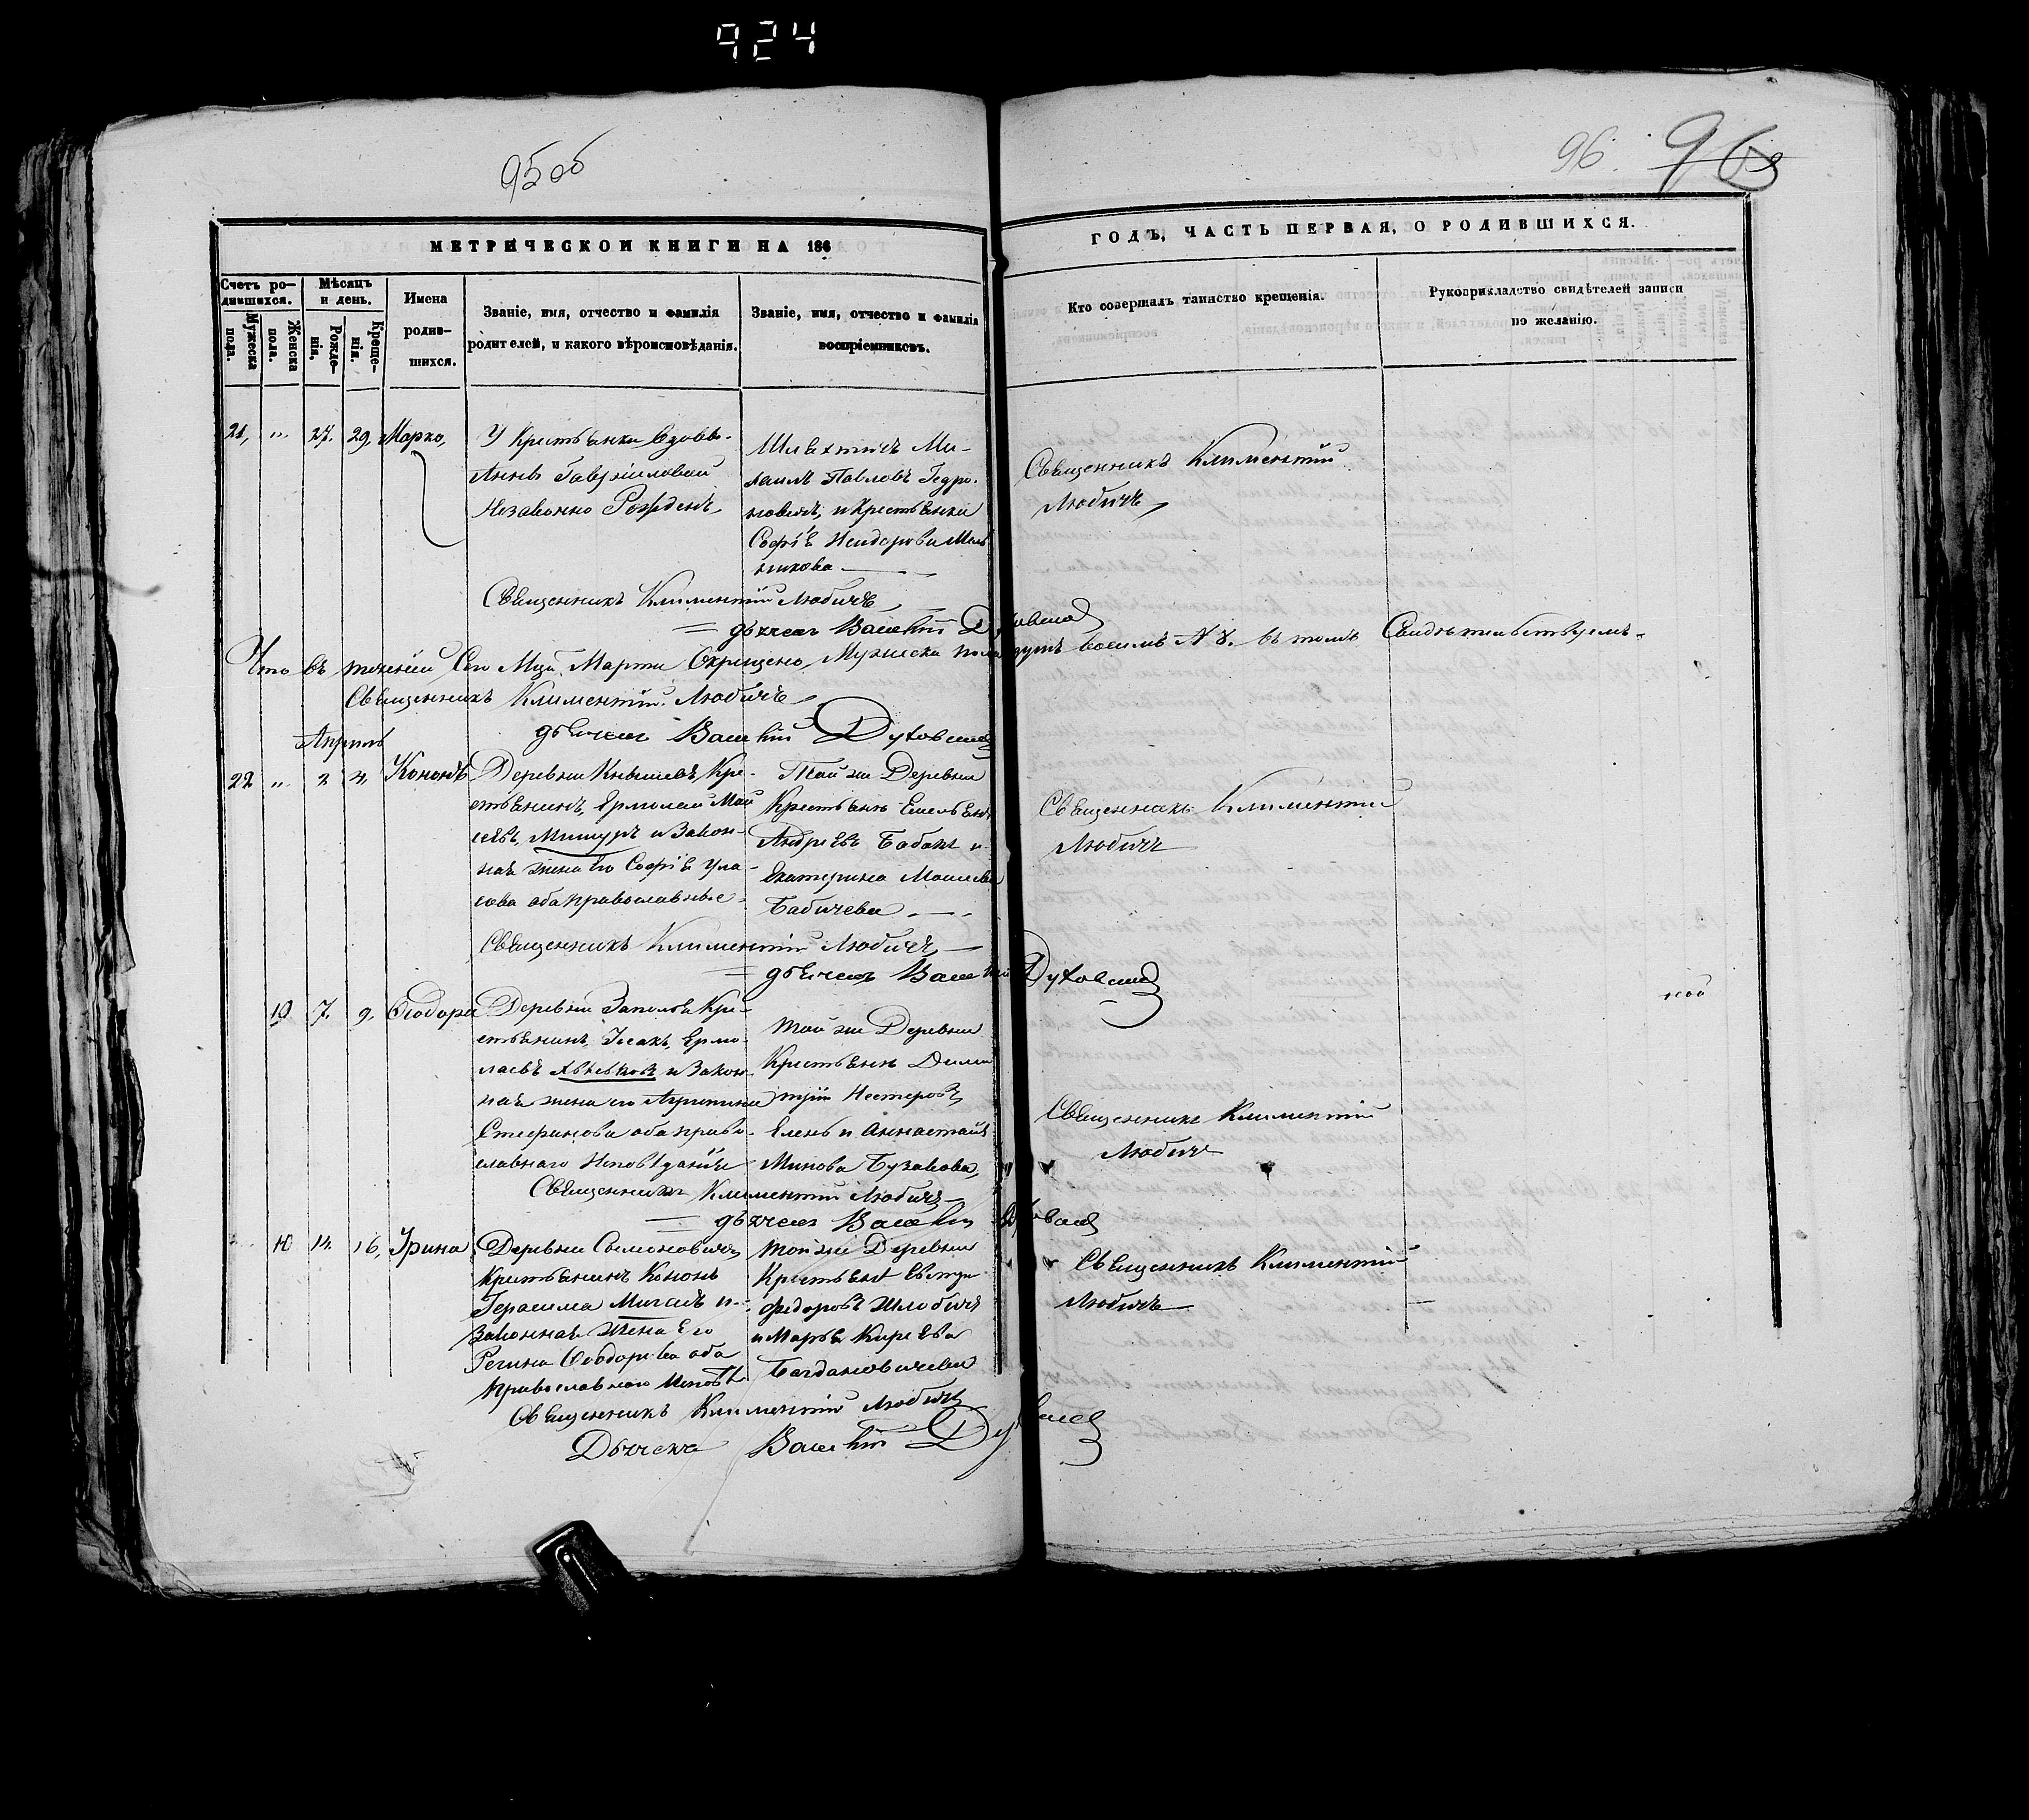 924
95 об
96. 96
МЕТРИЧЕСКОЙ КНИГИ НА 186
ГОДЪ, ЧАСТЬ ПЕРВАЯ, О РОДИВШИХСЯ.
Счетъ ро-
дившихся.
Мужеска
пола.
Женска
пола.
Мѣсяцъ
и день.
Рожде-
нія,
Креще-
нія.
Имена
родив-
шихся.
Званіе, имя, отчество и фамилія
родителей, и какого вѣроисповѣданія.
Званіе, имя, отчество и фамилія
воспріемниковъ.
Кто совершалъ таинство крещенія.
Рукоприкладство свидѣтелей записи
по желанію.
21, „ 27. 29, Марко,
У Крестьянки вдовы
Анны Гаврииловой
Незаконно Рожденъ
Шляхтичъ Ми-
хаилъ Павловъ
и Крестьянка
Софія
Священникъ Климентій
Любичъ
Священникъ Климентій Любичъ
дьячекъ Василій
Что въ теченіи Сего Марта Окрещено Мужеска пола душъ восемь № 8. въ томъ Свидѣтельствуемъ
Священникъ Климентій Любичъ
дьячекъ Василій Духовшев
Апрель
22 „ 2 4 Кононъ
Деревни Кре-
стьянинъ, Ермолай Мои
сѣевъ Мишуръ и Закон-
ная жена его Софія Ула-
сова оба православные
Той же Деревни
Крестьянъ Емельянъ
Андреевъ Бабакъ и
Екатерина Моисеева
Бабичева
Священникъ Климентій
Любичъ
Священникъ Климентій Любичъ
дьячекъ Василій Духовшев
10 7. 9. Ѳеодора
Деревни Заполья Кре-
стьянинъ, Исакъ, Ермо-
лаевъ и Закон-
ная жена его Агрипина
Стефанова оба право-
славнаго Исповѣданія
Той же Деревни
Крестьянъ Дими
трій Нестеровъ
и Аннастасія
Минова
Священникъ Климентій
Любичъ
Священникъ Климентій Любичъ
дьячекъ Василій
10 14. 16, Ирина
Деревни Симоновичъ
Крестьянинъ Кононъ
Герасима и
Законная Жена Его
Регина Ѳеодорова оба
Православнаго Исповѣ
Той же Деревни
Крестьянъ
Федоровъ Шлобичъ
и Марья Кирѣева
Богдановичева
Священникъ Климентій
Любичъ
Священникъ Климентій Любичъ
Дьячекъ Василій